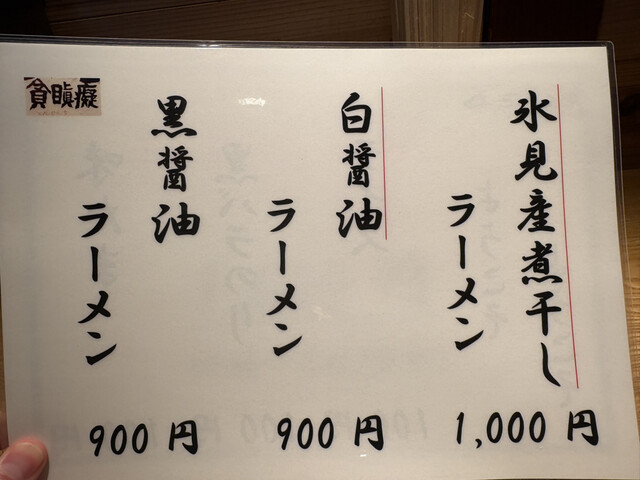 氷見産煮干し
ラーメン
1,000 円
白醤油
ラーメン
900 円
黒醤油
ラーメン
900 円
貪瞋癡